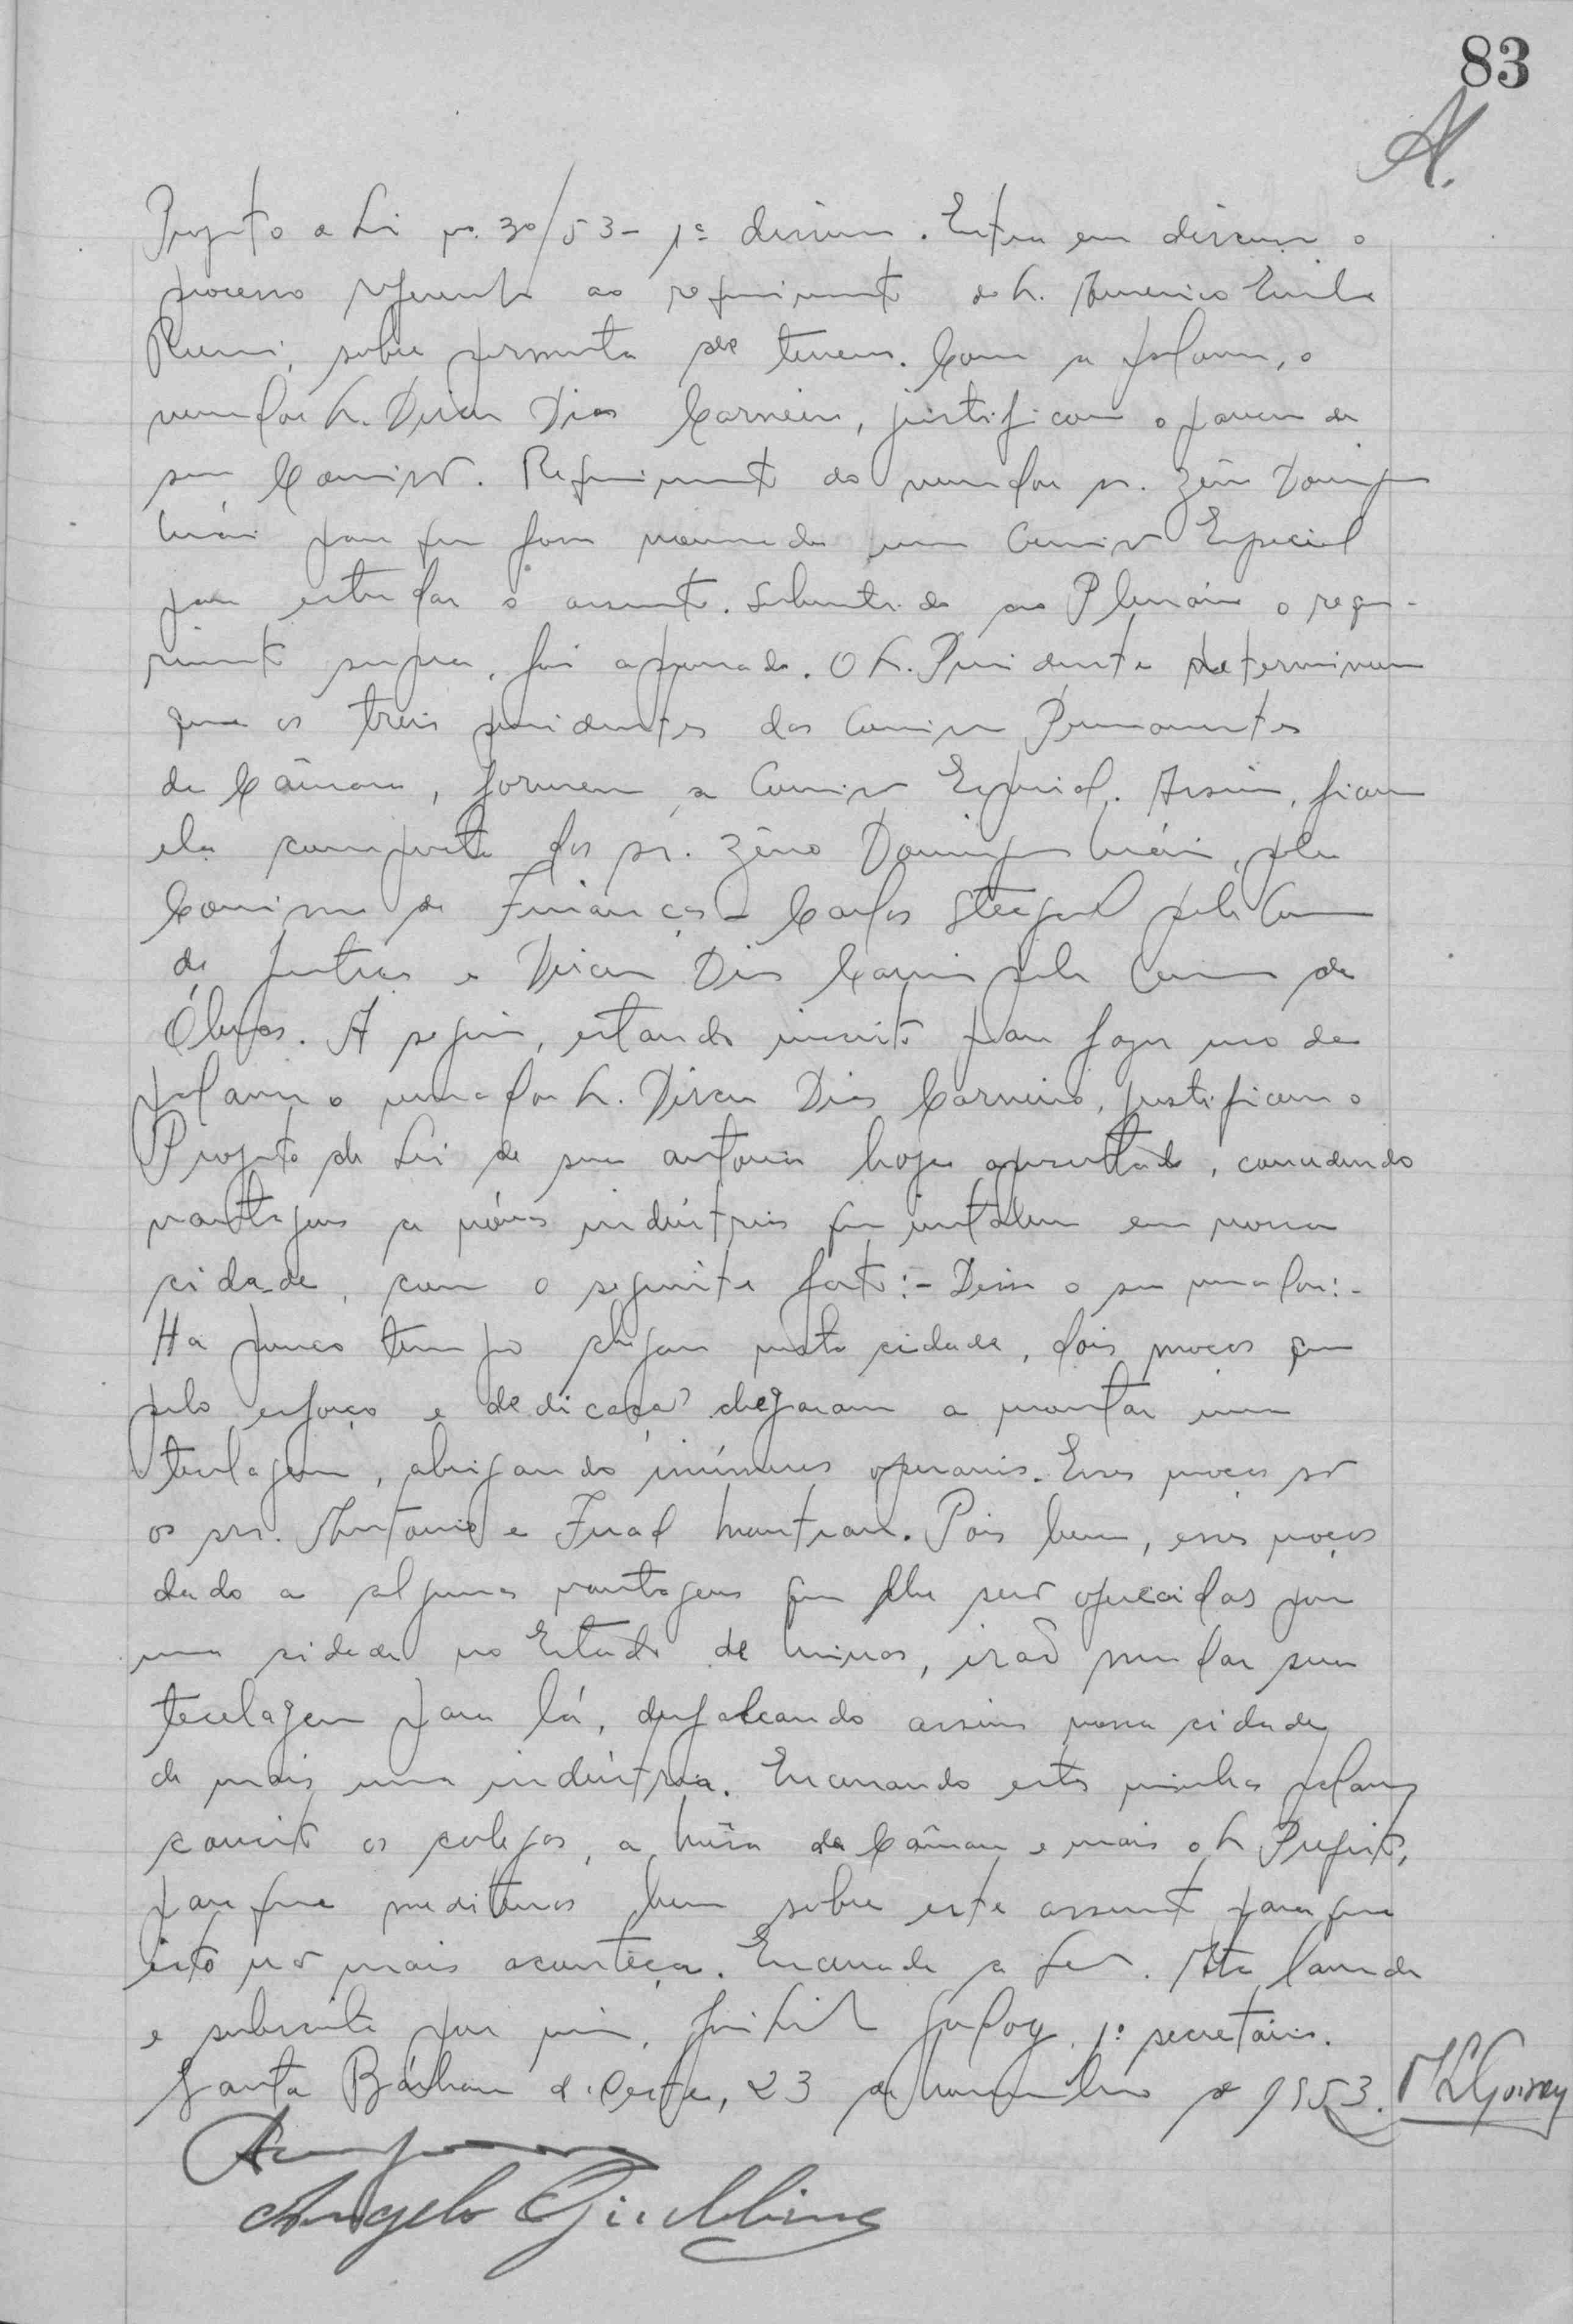 83
Projeto de Lei no. 30/53 - 1ª discussão. Entra em discussão o
processo referente ao requerimento do Sr. Americo Emilio
Romi, sobre permuta de terrenos. Com a palavra, o
vereador Sr. Dirceu Dias Carneiro, justificou o parecer de
sua Comissão. Requerimento do vereador sr. Zêno Domingues
Maia para que fosse nomeada uma Comissão Especial
para estudar o assunto. Submetido ao Plenário o reque-
rimento supra, foi aprovado. O Sr. Presidente determinou
que os treis presidentes das Comissões Permanentes
da Câmara, formem a Comissão Especial. Assim, ficou
ela composta dos srs. Zêno Domingues Maia, pela
Comissão de Finanças - Carlos Steagall pela Comissão
de Justiça e Dirceu Dias Carneiro pela Comissão de
Óbras. A seguir, estando inscrito para fazer uso da
palavra o vereador Sr. Dirceu Dias Carneiro, justificou o
Projeto de Lei de sua autoria hoje apresentado, concedendo
vantagens a nóvas indústrias que instalem em nossa
cidade, com o seguinte fato:- Disse o sr vereador:-
Ha pouco tempo chegaram nesta cidade, dois moços que
pelo esforço e dedicação chegaram a montar uma
tecelagem, abrigando inúmeros operarios. Esses moços são
os srs. Antonio e Fuad. Pois bem, esses moços
dado a algumas vantagens que lhe serão oferecidas por
uma cidade no Estado de Minas, irão mudar sua
tecelagem para lá, desfalcando assim nossa cidade
de mais uma indústria. Encerrando estas minhas palavras
convido os colegas, a Mêsa da Câmara e mais o Sr Prefeito,
para que meditemos bem sobre este assunto para que
isto não mais aconteça. Encerrada a sessão. Ata lavrada
e subscrita por mim, Godoy, 1º secretário.
Santa Bárbara d'Oeste, 23 de novembro de 1953.
Angelo Giubbina